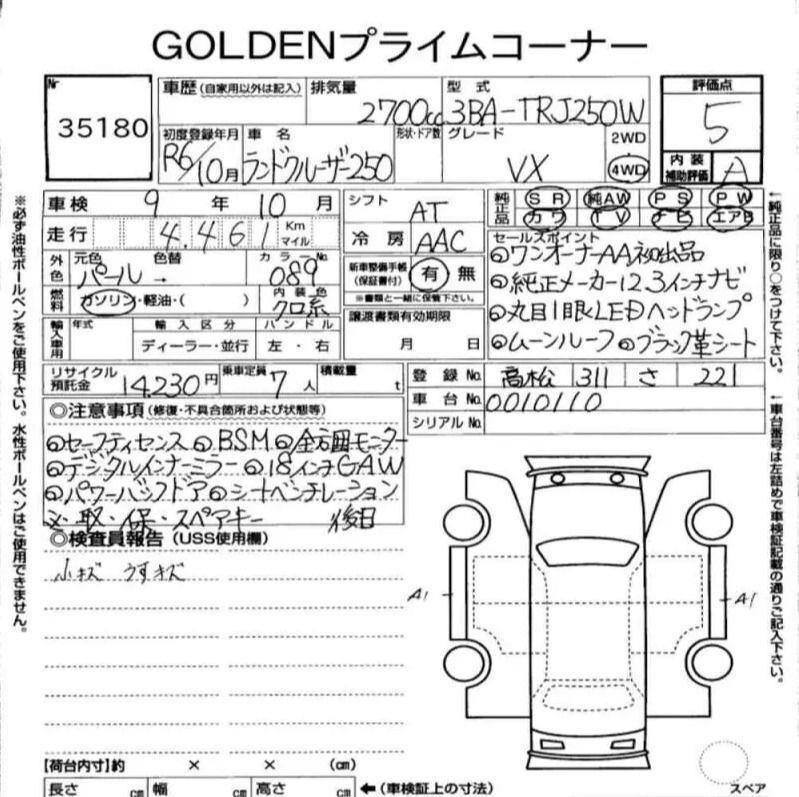 GOLDENプライムコーナー
№ 35180
車歴(自家用以外は記入) 排気量 2700cc 型式 3BA-TRJ250W 評価点 5
初度登録年月 R6/10月 車名 ランドクルーザー250 形状・ドア数 グレード VX 2WD 4WD 内装補助評価 A
車検 9年 10月 シフト AT 純正品 SR 純AW PS PW
カワ TV ナビ エアB
走行 4,461 Km マイル 冷房 AAC
外色 元色 パール 色替 → カラーNo. 089
新車整備手帳(保証書付) 有 無
※書類と一緒に保管下さい。
燃料 ガソリン・軽油・( ) 内装色 クロ系
輸入車用 年式 輸入区分 ハンドル
ディーラー・並行 左・右
譲渡書類有効期限
月 日
セールスポイント
●ワンオーナーAA初出品
●純正メーカー12.3インチナビ
●丸目1眼LEDヘッドランプ
●ムーンルーフ●ブラック革シート
リサイクル預託金 14,230円 乗車定員 7人 積載量 t
登録No. 高松 311 さ 221
車台No. 0010110
シリアルNo.
◎注意事項(修復・不具合箇所および状態等)
●セーフティセンス●BSM●全方囲モニター
●デジタルインナーミラー●18インチGAW
●パワーバックドア●シートベンチレーション
※・取・保・スペアキー 後日
◎検査員報告(USS使用欄)
小キズ うすキズ
A1
A1
【荷台内寸】約 × × (cm)
長さ cm 幅 cm 高さ cm ←(車検証上の寸法)
スペア
※必ず油性ボールペンをご使用下さい。水性ボールペンはご使用できません。
←純正品に限り○をつけて下さい。
←車台番号は左詰めで車検証記載の通りご記入下さい。